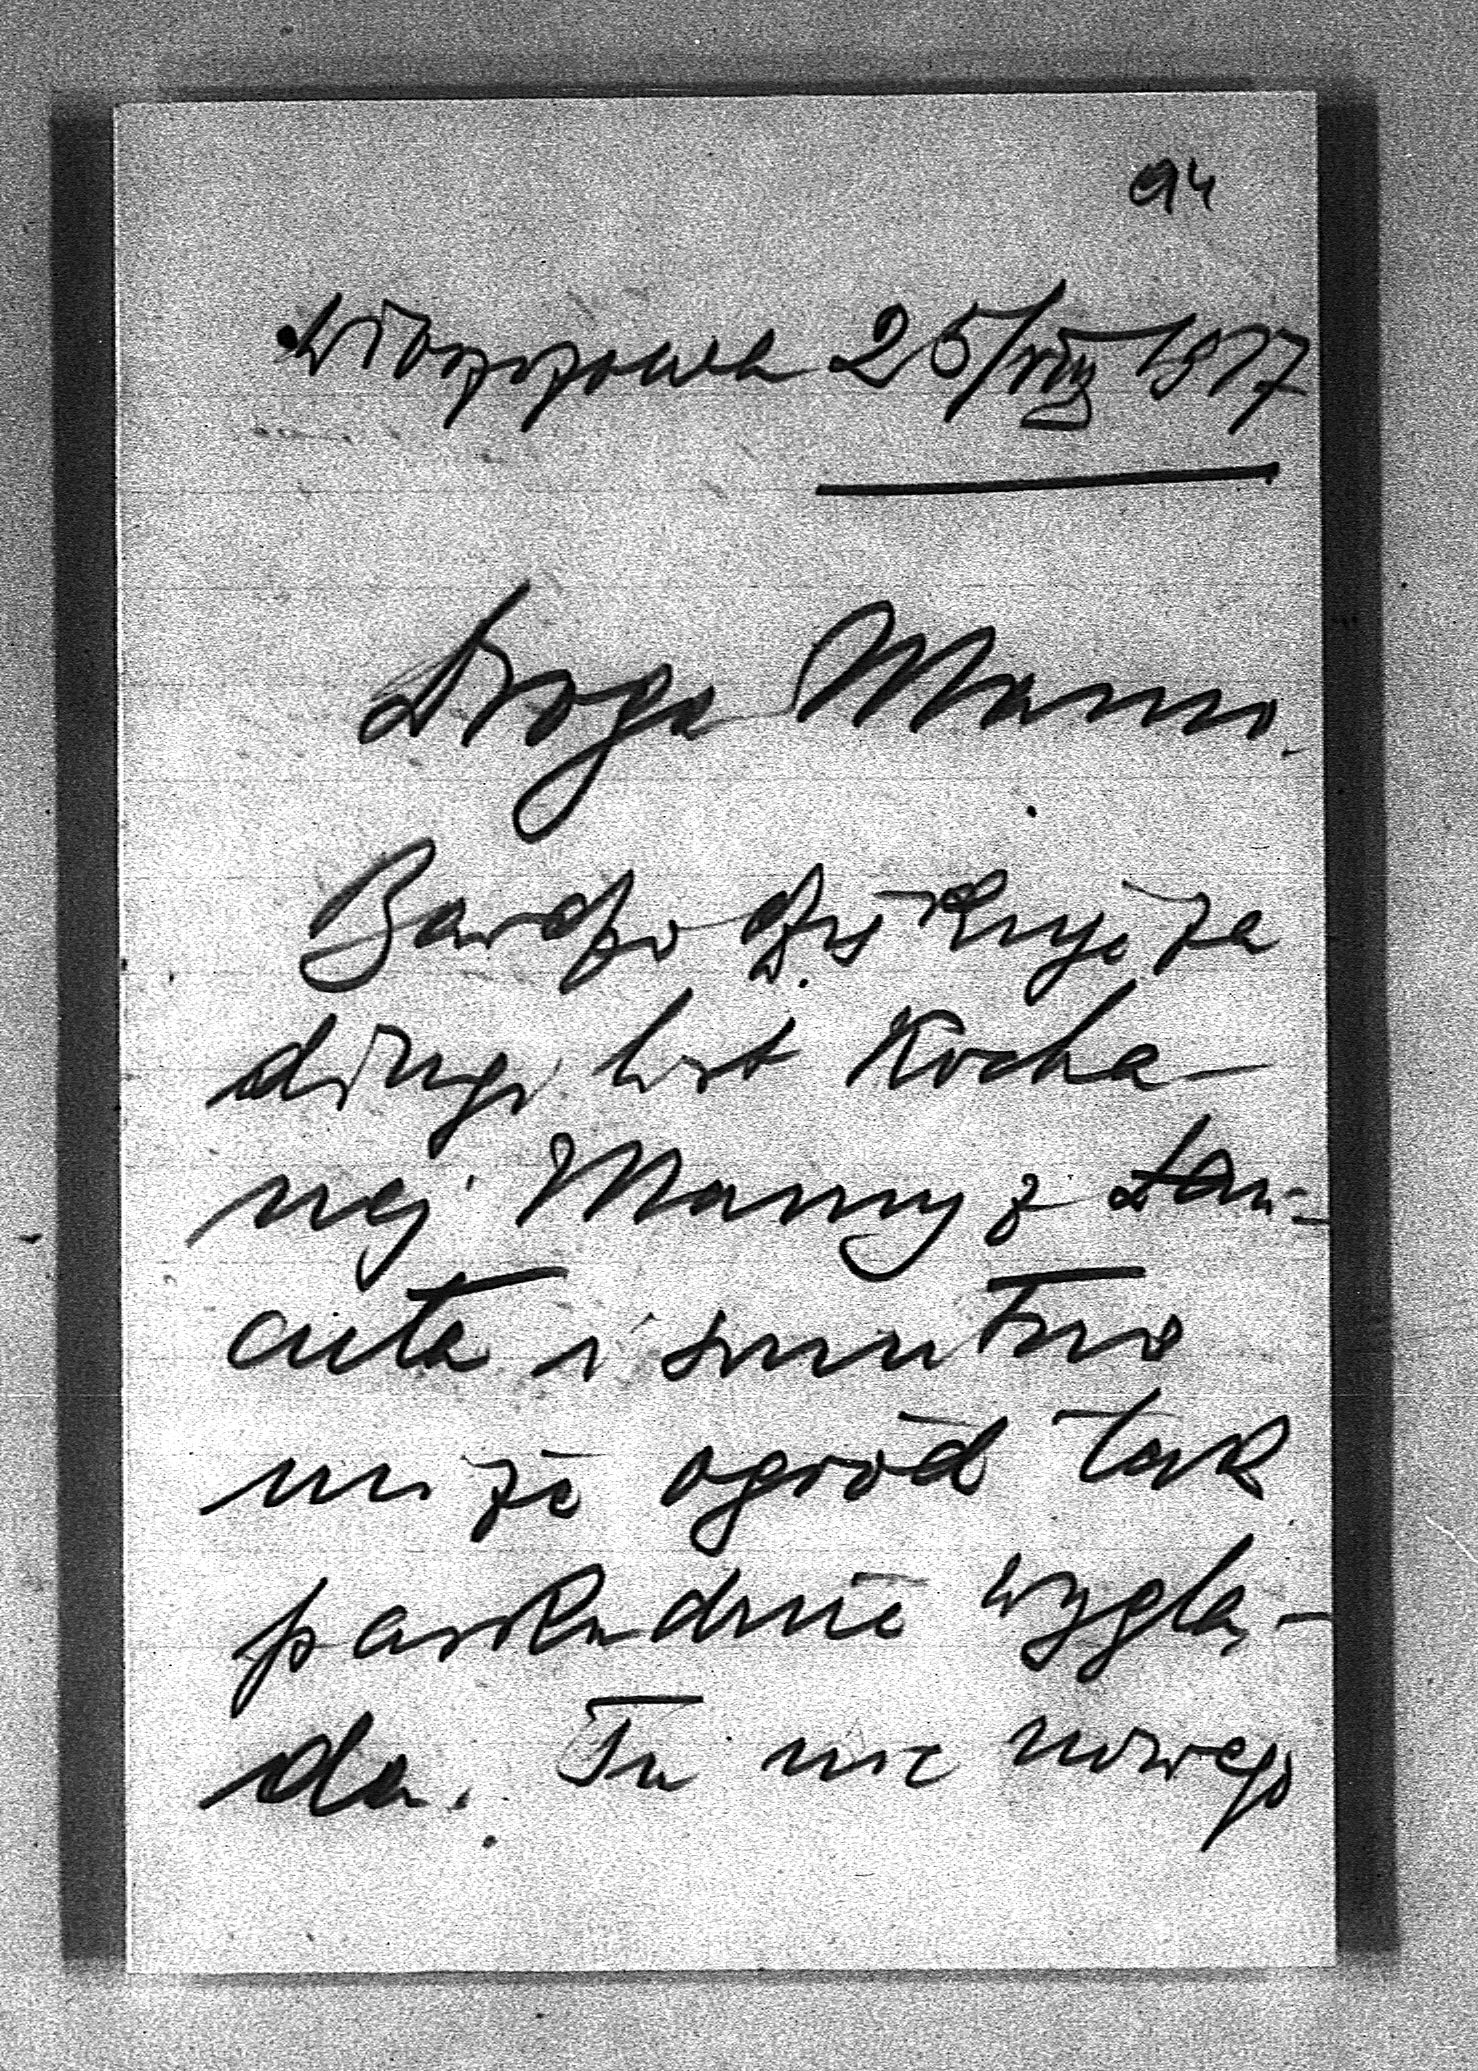 94
25/VIII 1917
Droga Mamo.
Bardzo dziękuję za
drugi list Kocha-
nej Mamy z Łań-
cuta i smutno
mi że ogród tak
paskudnie wyglą-
da. Tu nic nowego